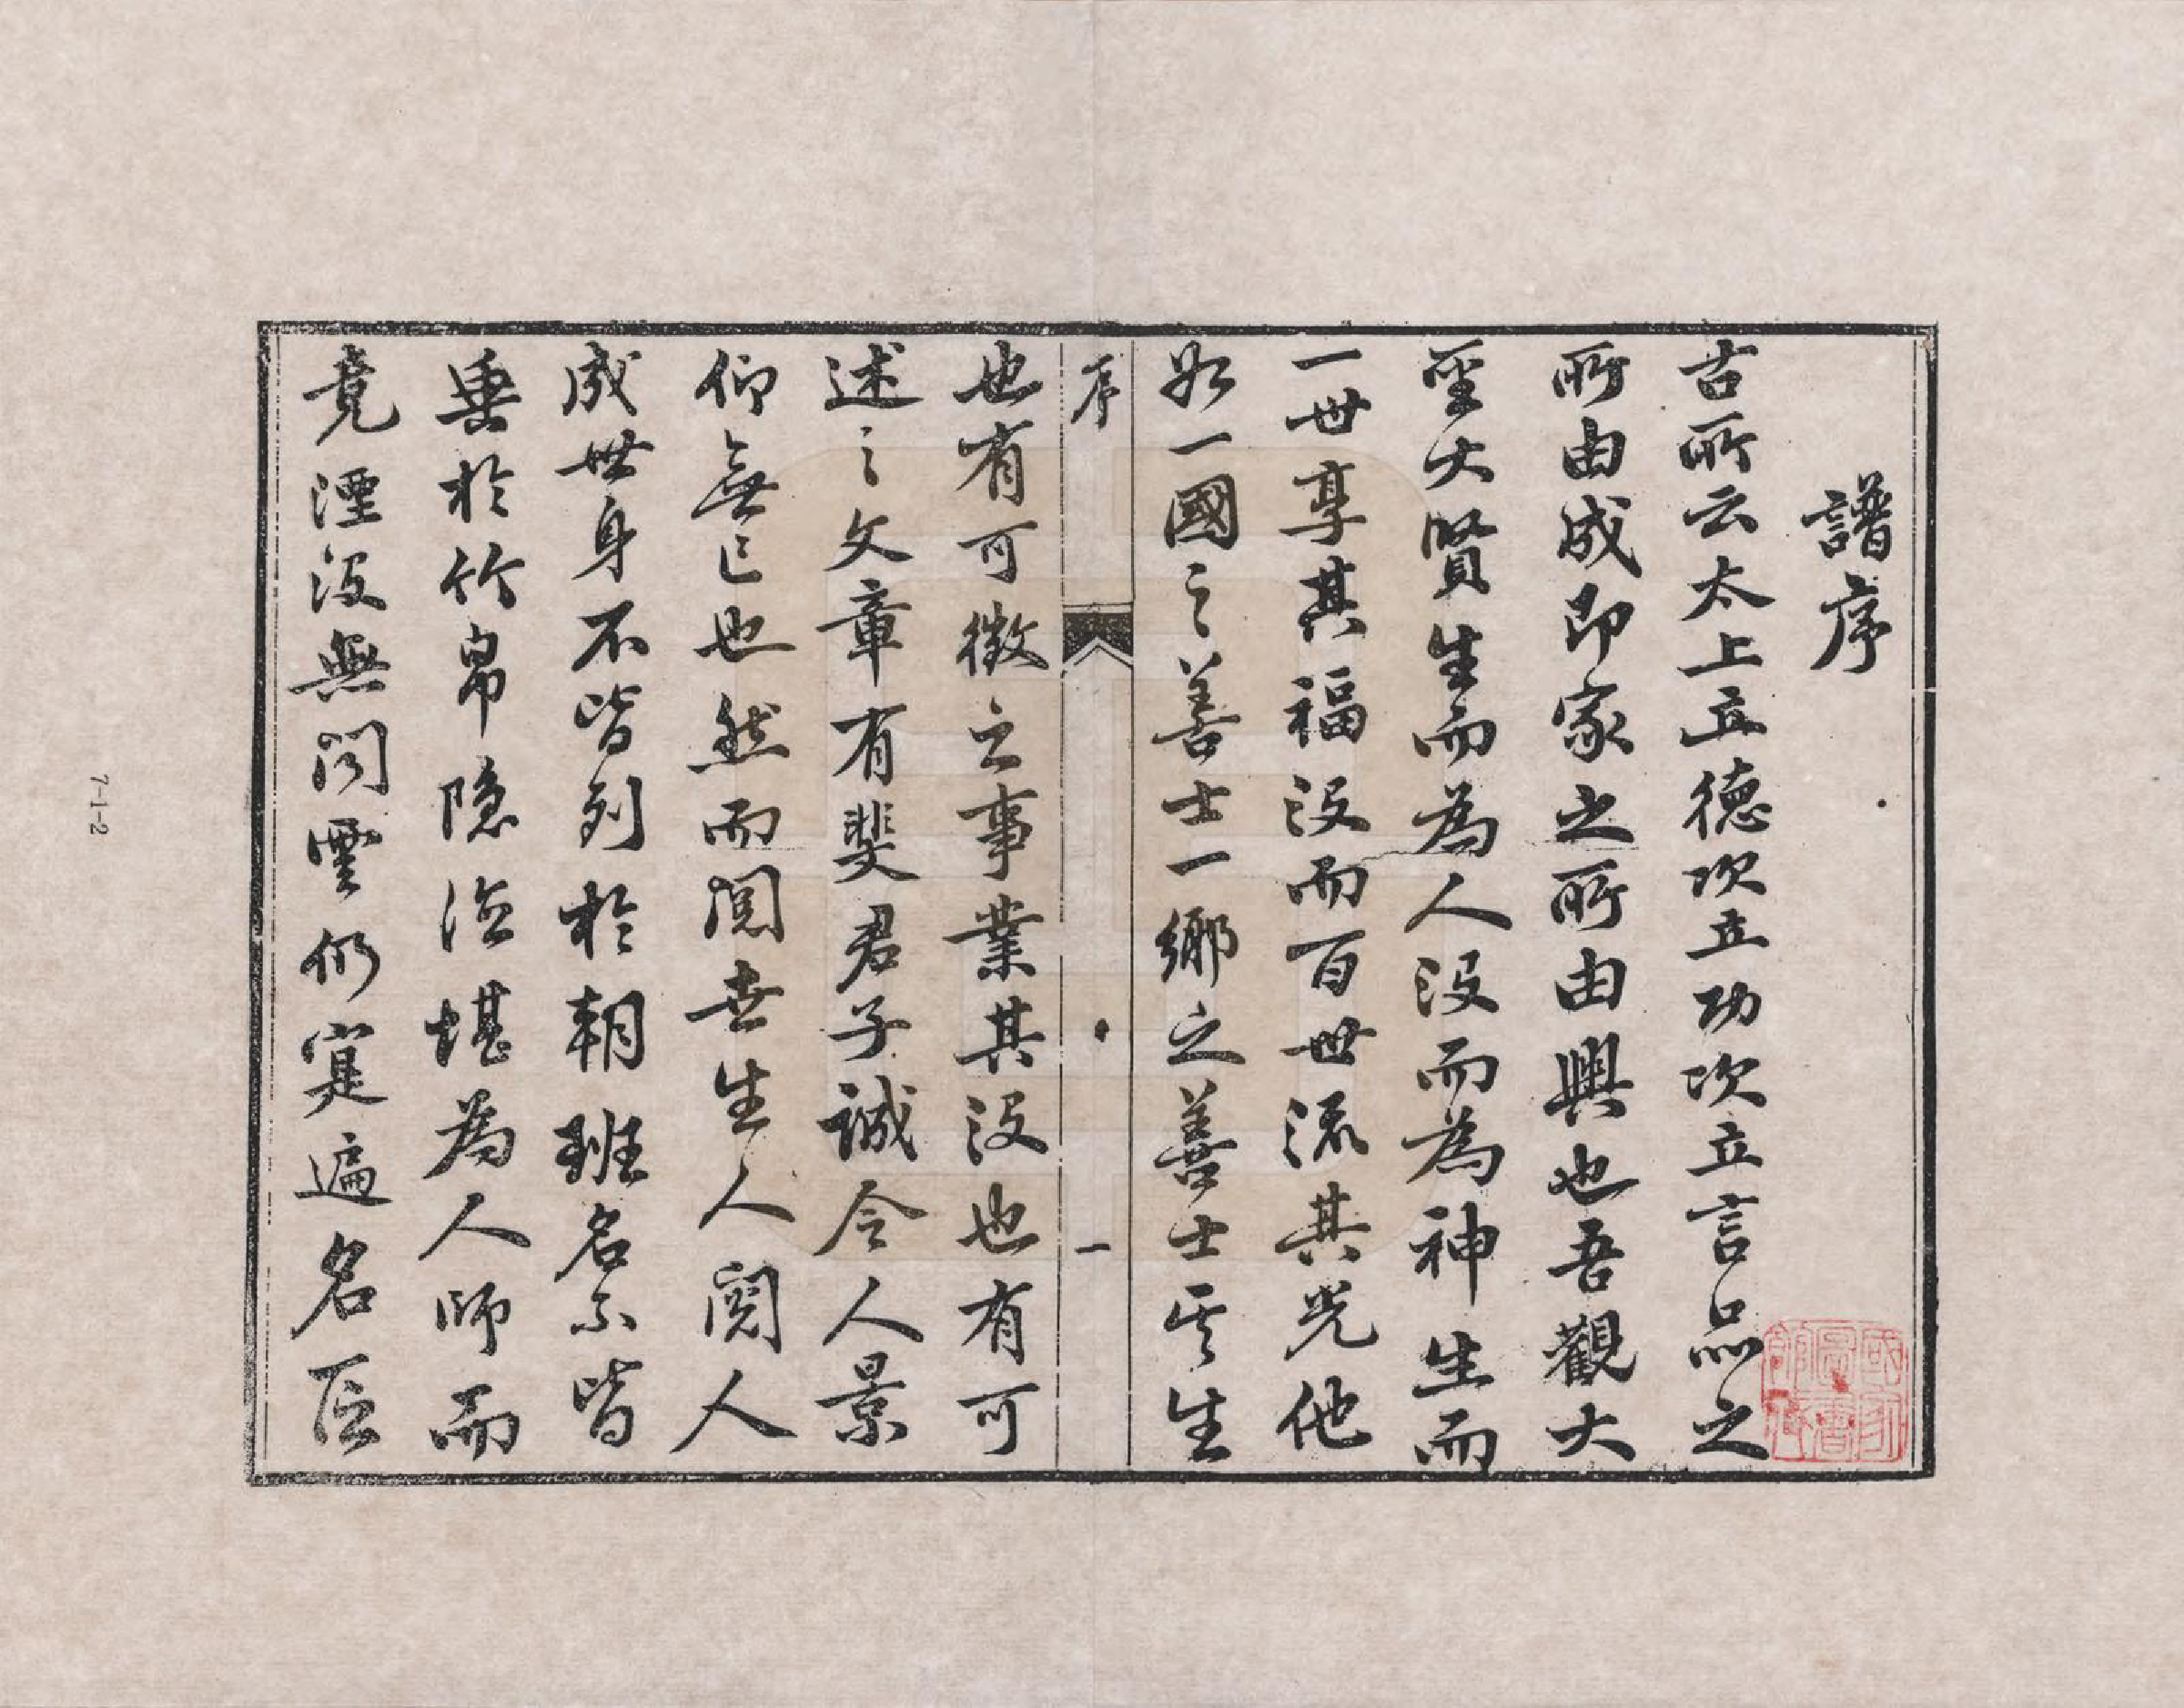 譜序
古所云太上立德次立功次立言品之
所由成即家之所由興也吾觀大
聖大賢生而為人沒而為神生而
一世享其福沒而百世流其光他
如一國之善士一鄉之善士其生
序
一
也有可徵之事業其沒也有可
述之文章有斐君子誠令人景
仰無已也然而閱世生人閱人
成世身不皆列於朝班名不皆
垂於竹帛隱德堪為人師而
竟湮沒無聞雲仍寔遍名臣
國家圖書館藏
7-1-2